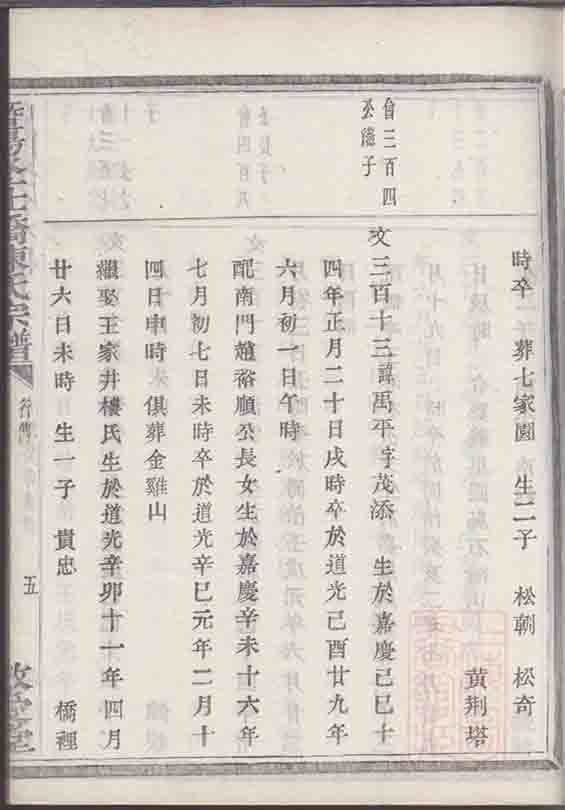 時卒 葬七家園 生二子 松朝 松奇
黃荆塔
自三百四
公隨子
文三百十三諱禹平字茂添 生於嘉慶己巳十
四年正月二十日戌時卒於道光己酉廿九年
六月初一日午時
配南門趙裕順公長女生於嘉慶辛未十六年
七月初七日未時卒於道光辛巳元年二月十
四日申時 俱葬金雞山
繼娶王家井樓氏生於道光辛卯十一年四月
廿六日未時 生一子 貴忠 橋裡
陳氏宗譜
行傳
五